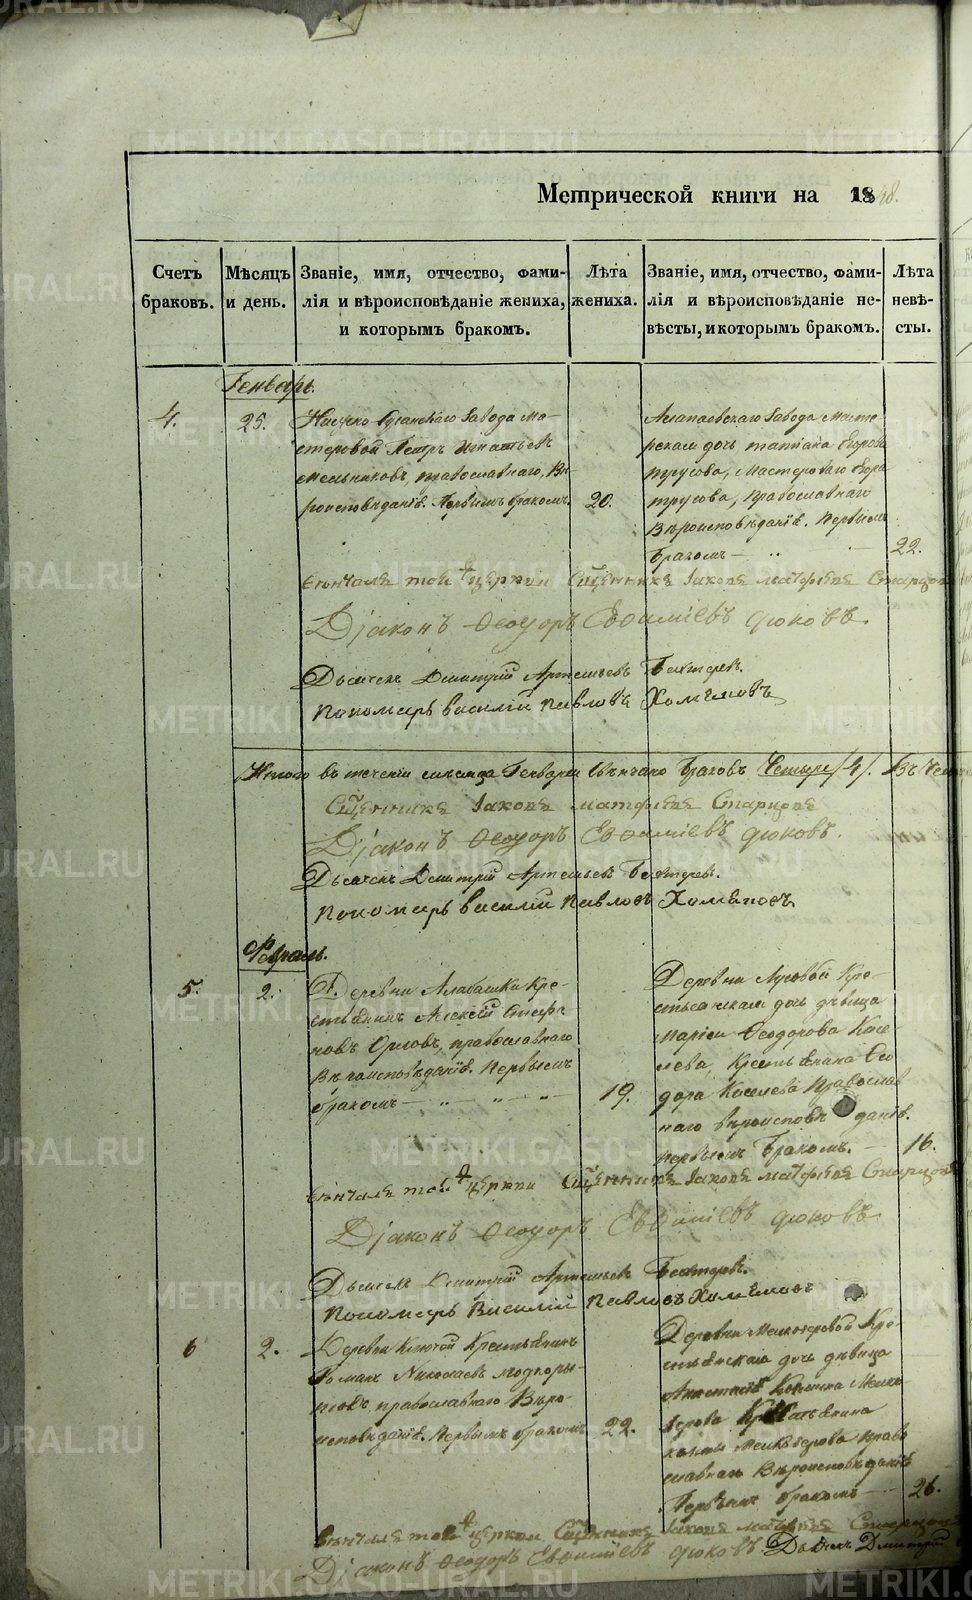 Метрической книги на 1848.
Счетъ браковъ.
Мѣсяцъ и день.
Званіе, имя, отчество, фами-
лія и вѣроисповѣданіе жениха,
и которымъ бракомъ.
Лѣта жениха.
Званіе, имя, отчество, фами-
лія и вѣроисповѣданіе не-
вѣсты, и которымъ бракомъ.
Лѣта невѣ-
сты.
Генварь.
4.
25.
Завода Ма-
стеровой Петръ Игнатьевъ
Мельниковъ, православнаго Вѣ-
роисповѣданія. Первымъ бракомъ.
20.
Алапаевскаго Завода Масте-
рская дочь Татіана Егорова
Трусова, Мастероваго Егора
Трусова, православнаго
Вѣроисповѣданія. Первымъ
бракомъ
22.
Вѣнчалъ той церкви Сщенникъ Іаковъ Матфіевъ Старцовъ
Діаконъ Ѳеодоръ Евѳиміевъ Дюковъ.
Дьячекъ Димитрій Артемьевъ Бехтеревъ.
Пономарь Василій Павловъ Хомяковъ
Итого въ теченіи месяца Генваря Вѣнчано браковъ Четыре /4/.
Сщенникъ Іаковъ Матфіевъ Старцовъ
Діаконъ Ѳеодоръ Евѳиміевъ Дюковъ.
Дьячекъ Димитрій Артемьевъ Бехтеревъ.
Пономарь Василій Павловъ Хомяковъ
Февраль.
5.
2.
Деревни Алабашки Кре-
стьянинъ Алексій Стефа-
новъ Орловъ, православнаго
Вѣроисповѣданія. Первымъ
бракомъ
19.
Деревни Луговой Кре-
стьянская дочь дѣвица
Марія Ѳеодорова Кисе-
лева, Крестьянина Ѳео
дора Киселева Православ
наго вѣроисповѣданія.
первымъ бракомъ.
16.
Вѣнчалъ той церкви Сщенникъ Іаковъ Матфіевъ Старцовъ
Діаконъ Ѳеодоръ Евѳиміевъ Дюковъ
Дьячекъ Димитрій Артемьевъ Бехтеревъ.
Пономарь Василій Павловъ Хомяковъ
6
2.
Деревни Ключей Крестьянинъ
Романъ Николаевъ Подкоры-
товъ православнаго Вѣро-
исповѣданія. Первымъ бракомъ
22.
Деревни Мелкозеровой Кре-
стьянская дочь дѣвица
Мелко-
зерова Крестьянина
Мелкозерова Право
славнаго Вѣроисповѣданія
Первымъ бракомъ
26.
Вѣнчалъ той церкви Сщенникъ Іаковъ Матфіевъ Старцовъ
Діаконъ Ѳеодоръ Евѳиміевъ Дюковъ. Дьячекъ Димитрій
METRIKI.GASO-URAL.RU